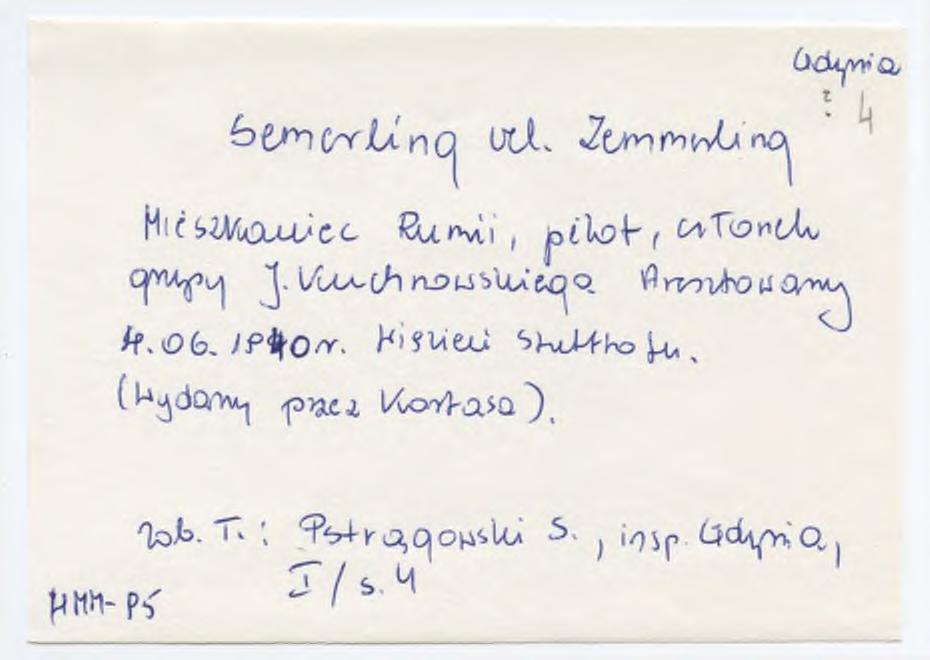 Gdynia
? 4
Semerling vel. Zemmerling
Mieszkaniec Rumii, pilot, członek
grupy J. Kuchnowskiego. Aresztowany
4.06.1940r. Więzień Stutthofu.
(Wydany przez Kortasa).
zob. T.: Pstrągowski S., insp. Gdynia,
I/s.4